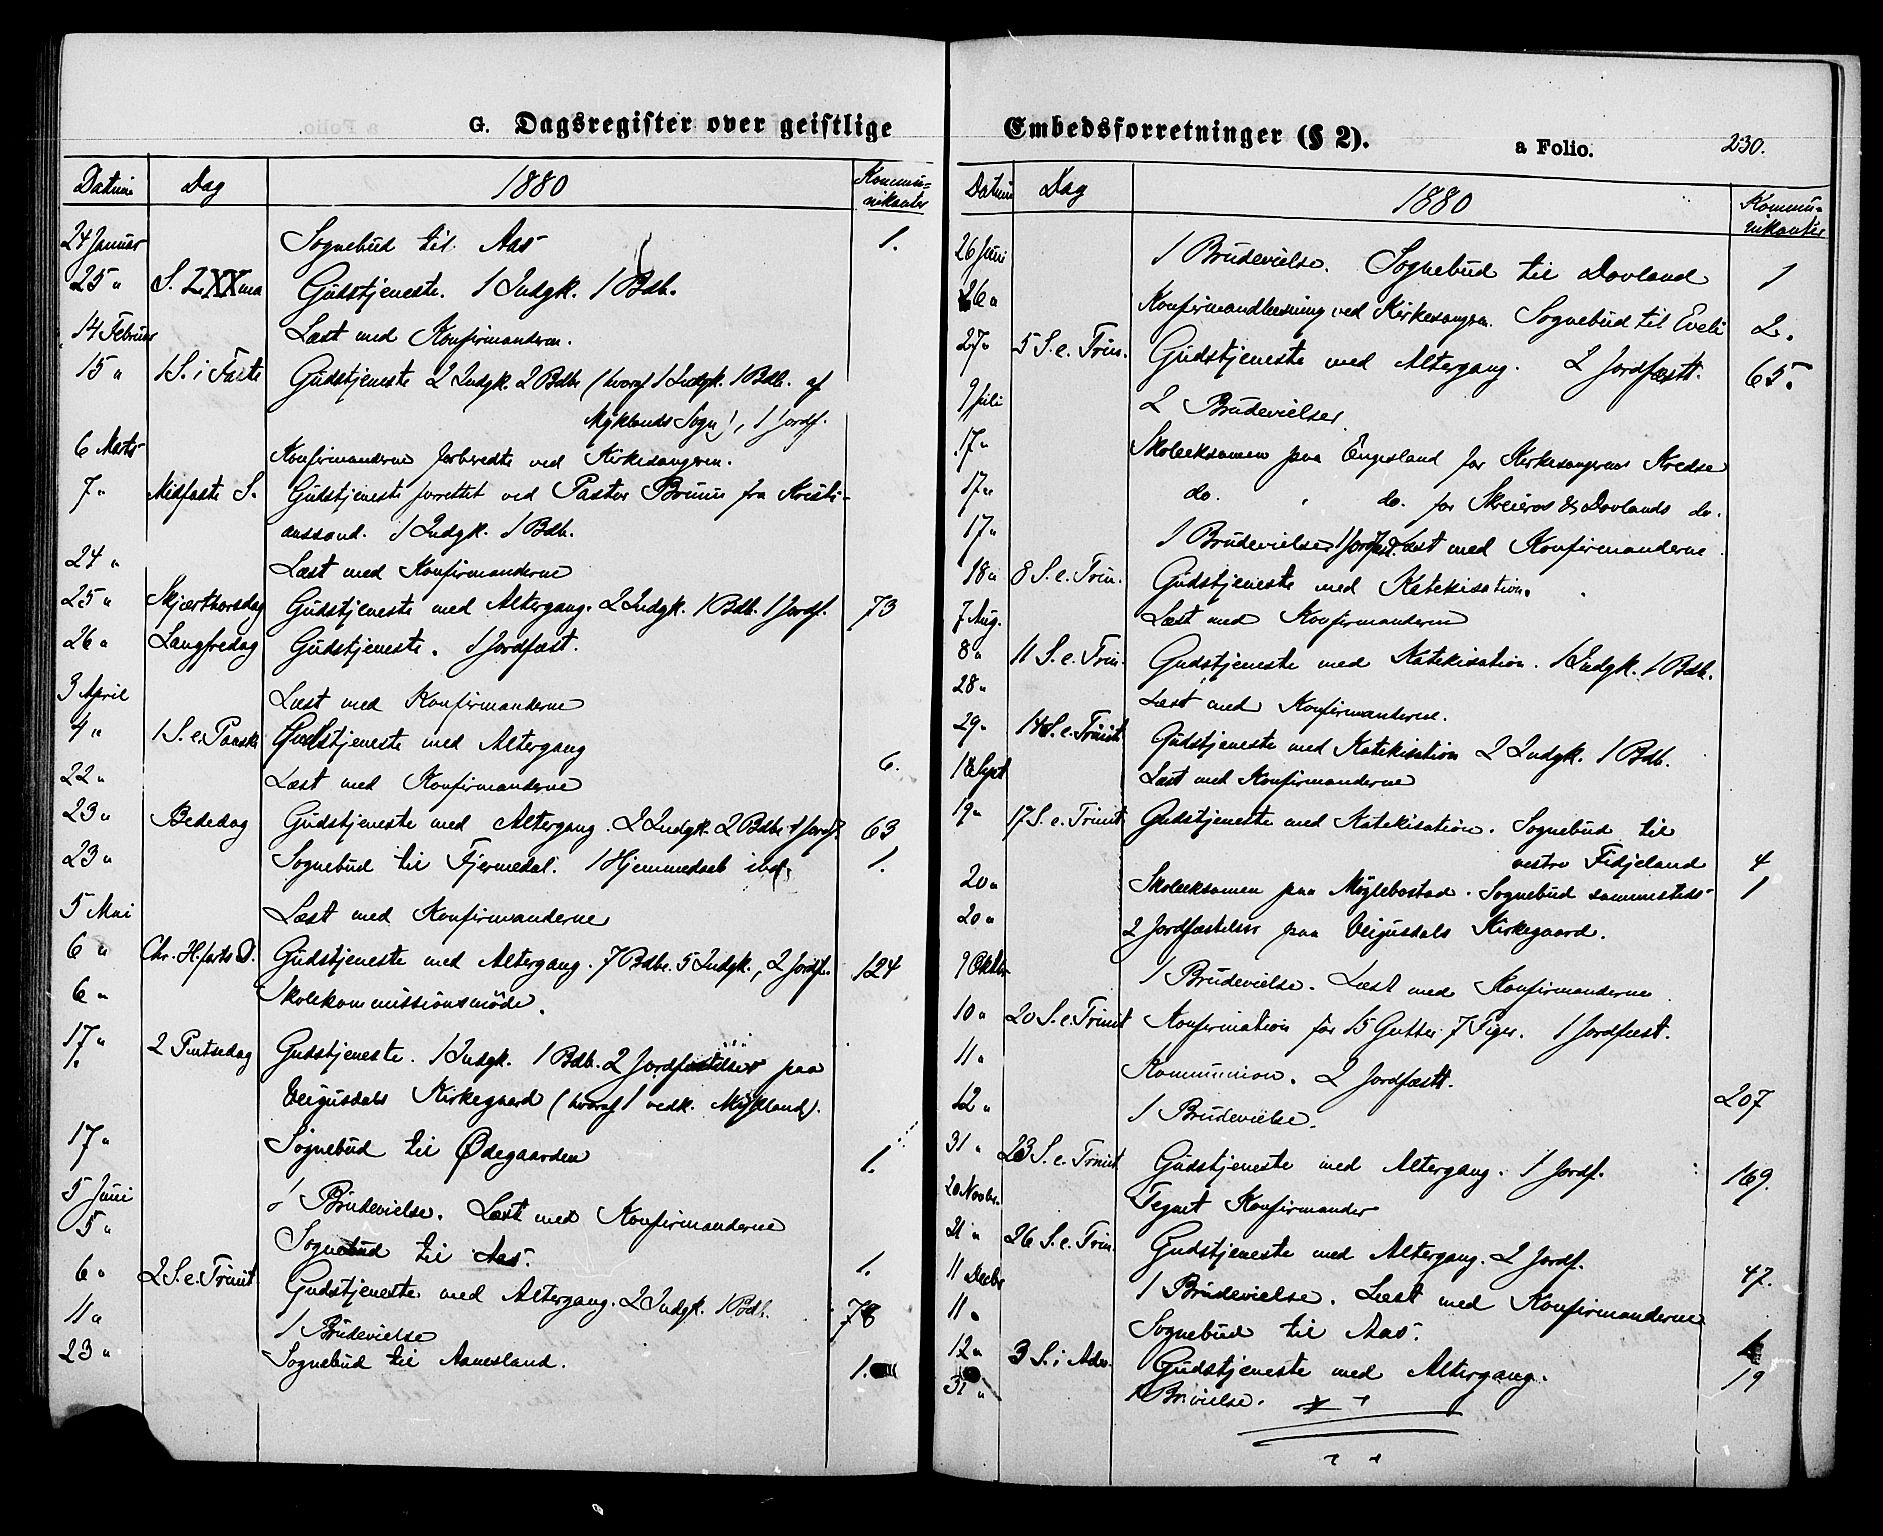 G. Dagsregister over geistlige
Datum Dag 1880 Kommu-
nikanter
24 Januar Sognebud til Aas 1.
25 " S. LXXma Gudstjeneste. 1 Indgk. 1 Bdb.
14 Februar Læst med Konfirmanderne.
15 " 1 S. i Faste Gudstjeneste 2 Indgk. 2 Bdbe (hvoraf 1 Indgk. 1 Bdb. af
Myklands Sogn), 1 Jordf.
6 Marts Konfirmanderne forberedte ved Kirkesangeren.
7 " Midfaste S. Gudstjeneste forrettet ved Pastor Bruun fra Kristi-
anssand. 1 Indgk. 1 Bdb.
24 " Læst med Konfirmanderne
25 " Skjærthorsdag Gudstjeneste med Altergang. 2 Indgk. 1 Bdb. 1 Jordf. 73
26 " Langfredag Gudstjeneste. 1 Jordfæst.
3 April Læst med Konfirmanderne
4 " 1 S. e. Paaske Gudstjeneste med Altergang 6.
22 " Læst med Konfirmanderne
23 " Bededag Gudstjeneste med Altergang. 2 Indgk. 2 Bdbe 1 Jordf. 63
23 " Sognebud til Fjermedal. 1 Hjemmedaab ibd. 1.
5 Mai Læst med Konfirmanderne
6 " Chr. H.farts D. Gudstjeneste med Altergang. 7 Bdbe. 5 Indgk., 2 Jordf. 124
6 " Skolekommissionsmöde.
17 " 2 Pintsedag Gudstjeneste. 1 Indgk. 1 Bdb. 2 Jordfæstelser paa
Veigusdals Kirkegaard (hvoraf 1 vedk. Mykland).
17 " Sognebud til Ødegaarden 1.
5 Juni 1 Brudevielse. Læst med Konfirmanderne
5 " Sognebud til Aas. 1.
6 " 2 S. e. Trinit Gudstjeneste med Altergang. 2 Indgk. 1 Bdb. 78
11 " 1 Brudevielse
23 " Sognebud til Aanesland. 1.
Embedsforretninger (§ 2). a Folio. 230.
Datum Dag 1880 Kommu-
nikanter
26 Juni 1 Brudevielse. Sognebud til Dovland 1
26 " Konfirmandlæsning ved Kirkesangeren. Sognebud til Eveli 2.
27 " 5 S. e. Trin. Gudstjeneste med Altergang. 2 Jordfæstt. 65.
9 Juli 2 Brudevielser
17 " Skoleeksamen paa Engesland for Kirkesangerens Kredse
17 " do. " do. for Skreieros & Dovlands do.
17 " 1 Brudevielse 1 Jordfæst. Læst med Konfirmanderne.
18 " 8 S. e. Trin. Gudstjeneste med Katekisation.
7 Aug. Læst med Konfirmanderne
8 " 11 S. e. Trin. Gudstjeneste med Katekisation. 1 Indgk. 1 Bdb.
28 " Læst med Konfirmanderne.
29 " 14 S. e. Trinit Gudstjeneste med Katekisation 2 Indgk. 1 Bdb.
18 Sept Læst med Konfirmanderne
19 " 17 S. e. Trinit Gudstjeneste med Katekisation. Sognebud til
vestre Fidjeland 4
20 " Skoleeksamen paa Myglebostad. Sognebud sammesteds 1
20 " 2 Jordfæstelser paa Veigusdals Kirkegaard.
9 Oktbr 1 Brudevielse. Læst med Konfirmanderne
10 " 20 S. e. Trinit Konfirmation for 15 Gutter 7 Piger. 1 Jordfæst.
11 " Kommunion. 2 Jordfæstt. 207
12 " 1 Brudevielse.
31 " 23 S. e. Trinit Gudstjeneste med Altergang. 1 Jordf. 169.
20 Novbr. Tegnet Konfirmander
21 " 26 S. e. Trin. Gudstjeneste med Altergang. 2 Jordf. 47.
11 Decbr 1 Brudevielse. Læst med Konfirmanderne
11 " Sognebud til Aas.
12 " 3 S. i Adv. Gudstjeneste med Altergang. 19
31 " 1 Br.vielse.